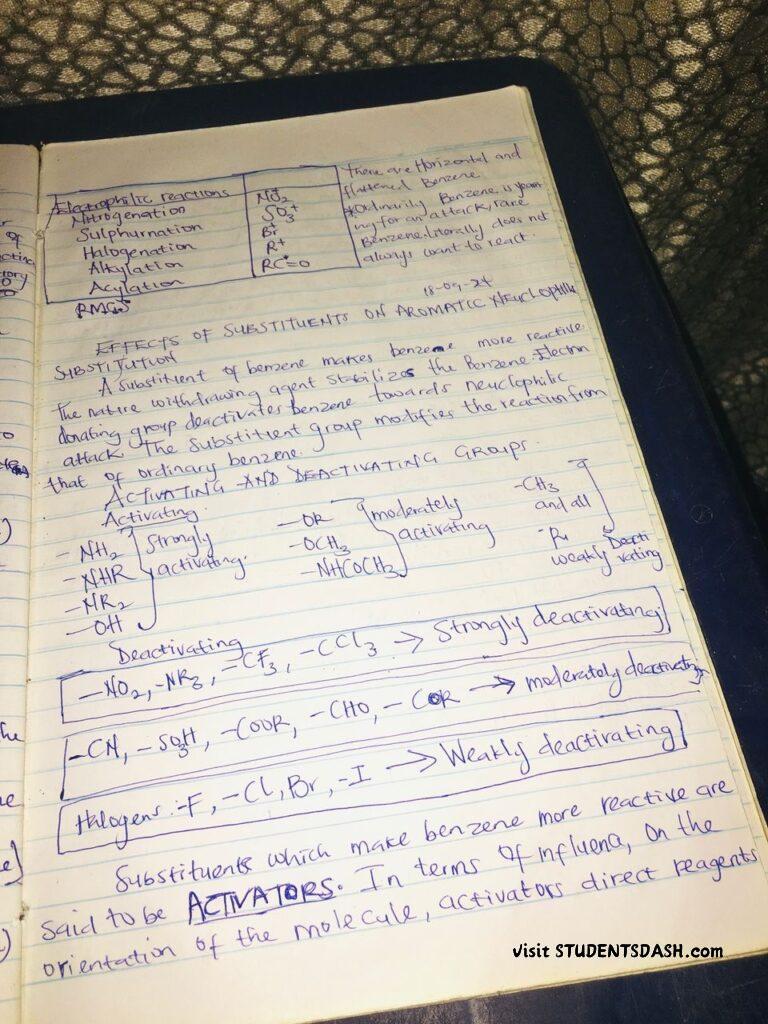 Electrophilic reactions
Nitrogenation NO₂⁺
Sulphurnation SO₃⁺
Halogenation Br⁺
Alkylation R⁺
Acylation RC⁺=O
There are Horizontal and
flattened Benzene
always want to react.
Benzene literally does not
18-09-24
EFFECTS OF SUBSTITUENTS ON AROMATIC NEUCLOPHILIC
SUBSTITUTION
A substituent of benzene makes benzene more reactive.
The nature withdrawing agent stabilizes the Benzene. Electron
donating group deactivates benzene towards neuclophilic
attack. The substituent group modifies the reaction from
that of ordinary benzene.
ACTIVATING AND DEACTIVATING GROUPS.
Activating
-NH₂
-NHR
-NR₂
-OH
Strongly
activating.
-OR
-OCH₃
-NHCOCH₃
moderately
activating
-CH₃
and all
-R
weakly
Deactivating
-NO₂, -NR₃, -CF₃, -CCl₃ → Strongly deactivating.
-CN, -SO₃H, -COOR, -CHO, -COR → moderately deactivating
Halogens :-F, -Cl, Br, -I → Weakly deactivating
Substituents which make benzene more reactive are
said to be ACTIVATORS. In terms of influena, on the
orientation of the molecule, activators direct reagents
visit STUDENTSDASH.com